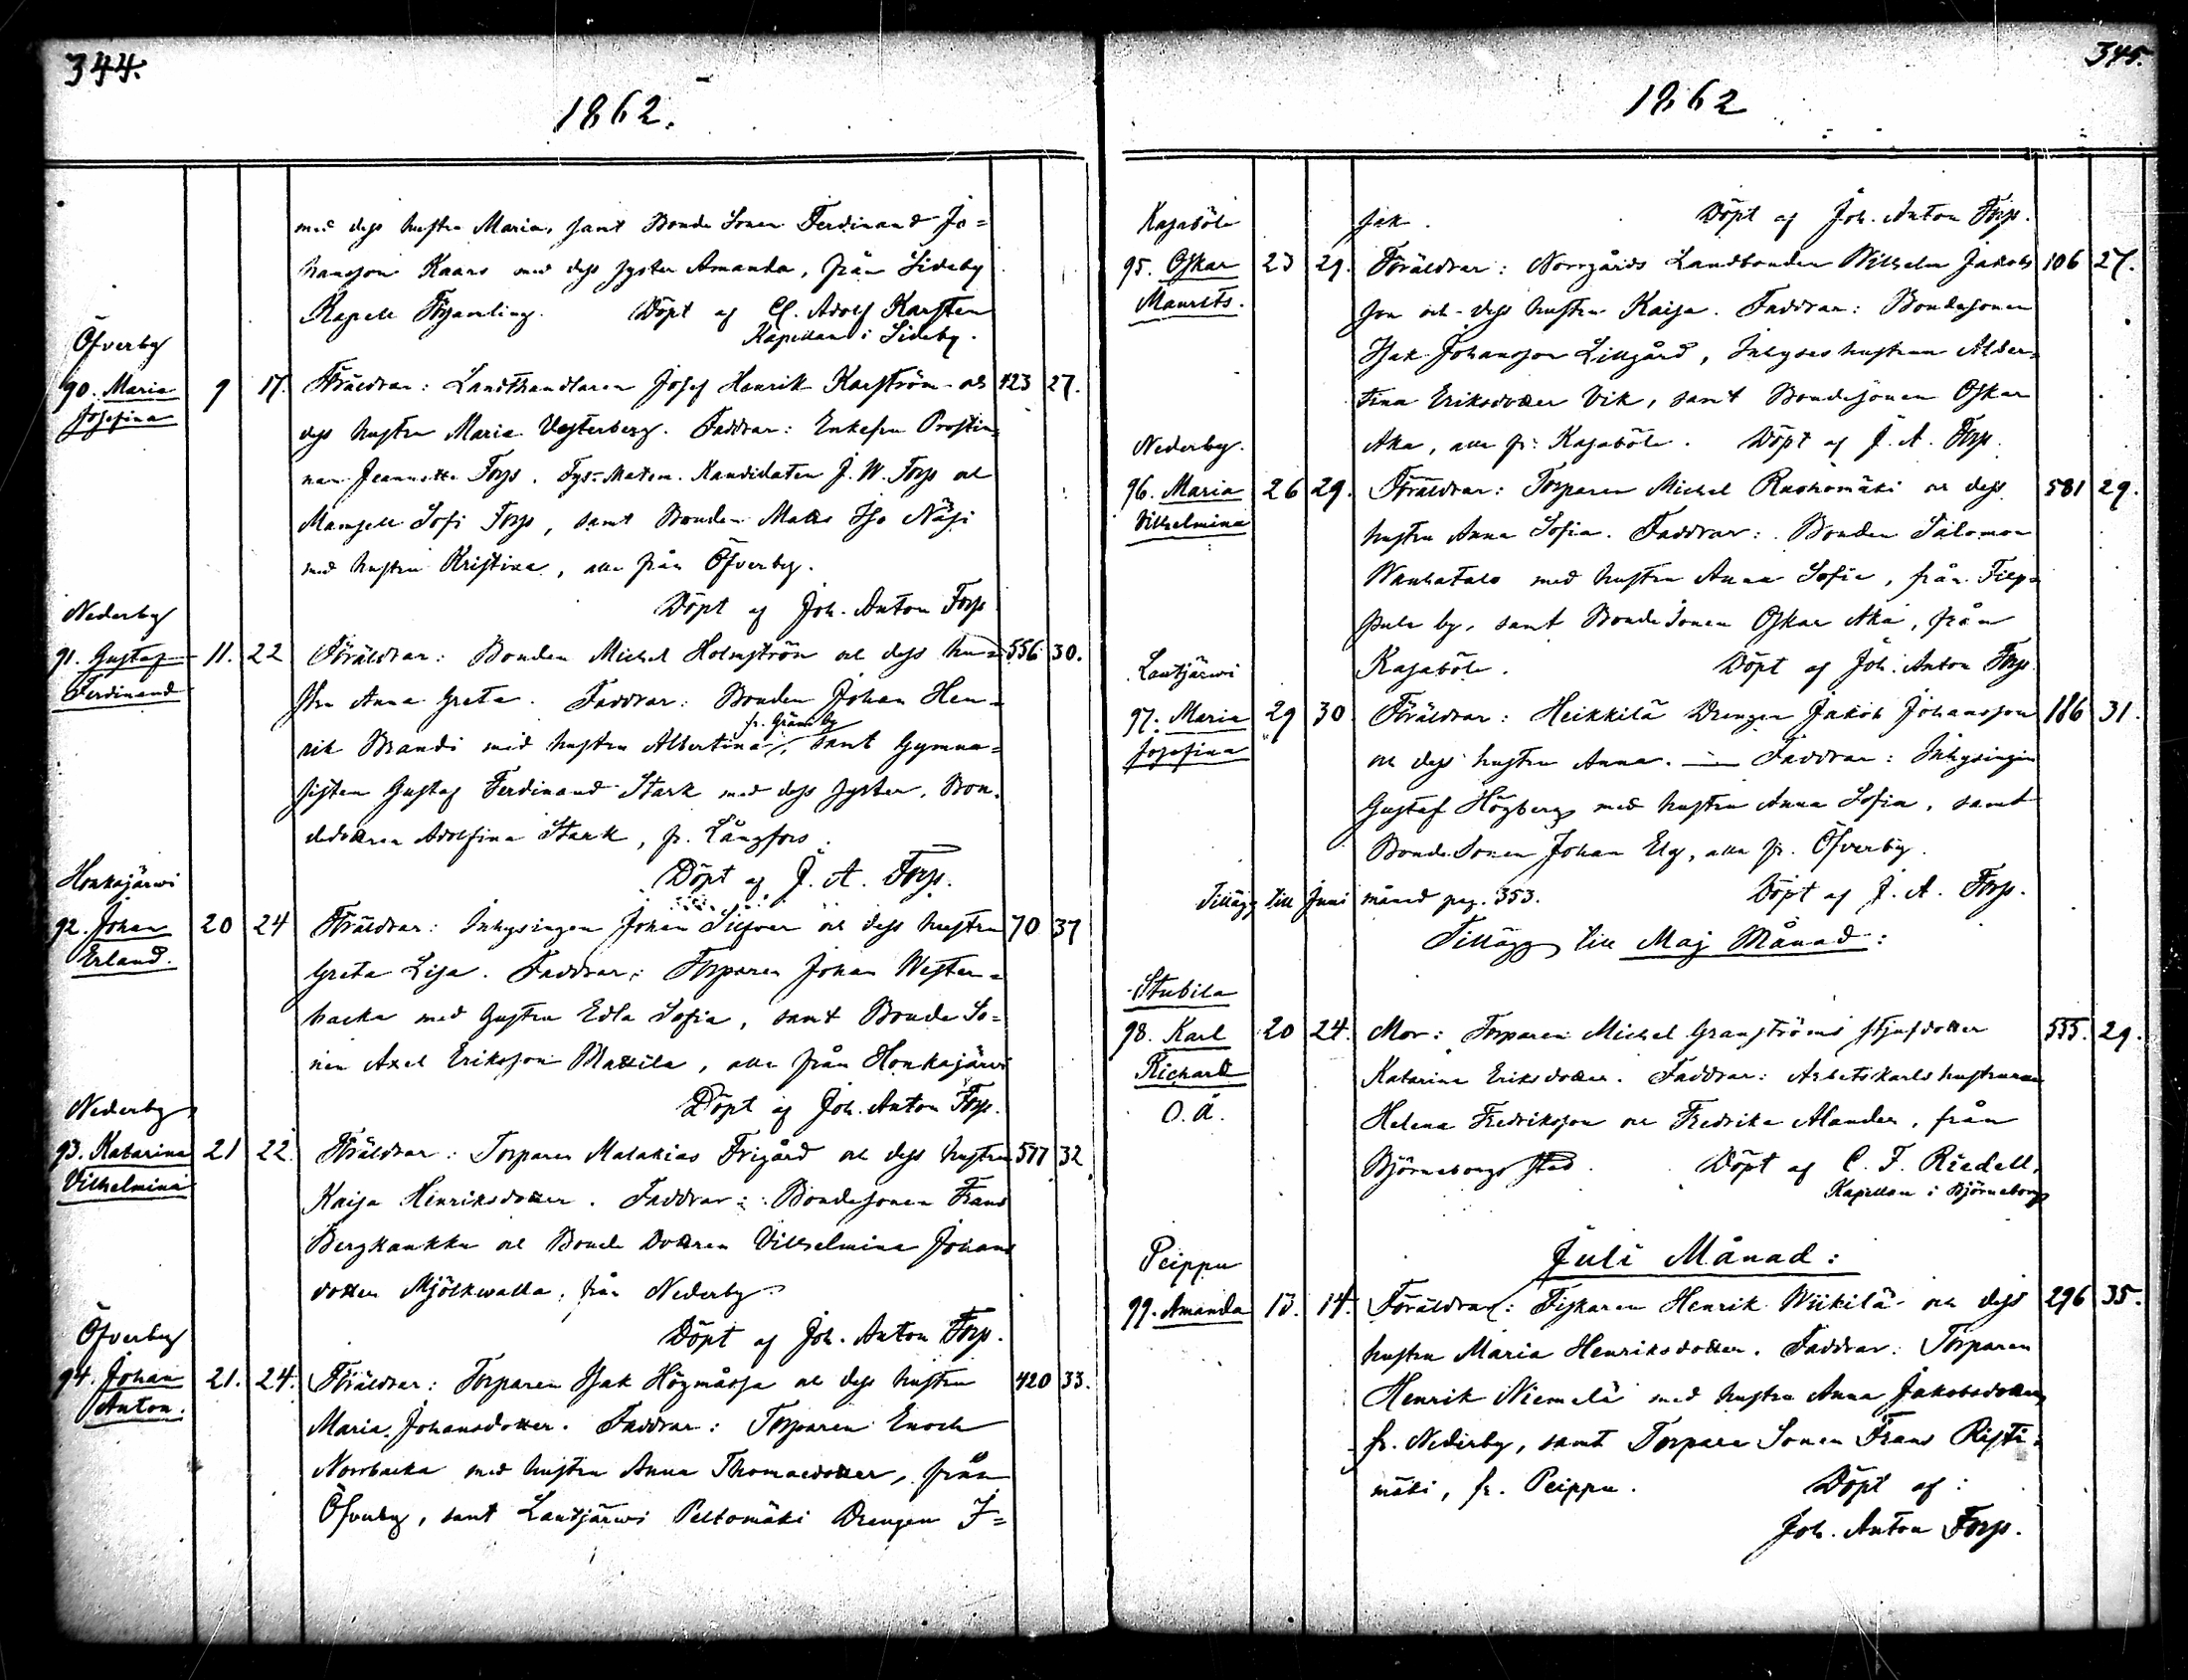 344.
1862.
med dess hustru Maria, samt Bonde Sonen Ferdinand Jo=
hansson Kaars med dess syster Amanda, från Sideby
Kapell Församling. Döpt af Cl. Adolf Karsten
Kapellan i Sideby.
Öfverby
90. Maria 9 17. Föräldrar: Landthandlaren Josef Henrik Karström och 423 27.
Josefina dess hustru Maria Vesterberg. Faddrar: Enkefru Prostin=
nan Jeannette Forss, Fys. Matem. Kandidaten J. W. Forss och
Mamsell Sofi Forss, samt Bonden Matts Isr Näsi
med hustru Kristina, alla från Öfverby.
Döpt af Joh. Anton Forss
Nederby
91. Gustaf 11. 22 Föräldrar: Bonden Michel Holmström och dess hu= 556 30.
Ferdinand stru Anna Greta. Faddrar: Bonden Johan Hen=
fr. Gräns by
rik Brandi med hustru Albertina, samt Gymna=
sisten Gustaf Ferdinand Stark med dess syster, Bon=
dedottren Adolfina Stark, fr. Långfors.
Döpt af J. A. Forss.
Honkajärwi
92. Johan 20 24 Föräldrar: Inhysingen Johan Silfver och dess hustru 70 37
Erland. Greta Lisa. Faddrar: Torparen Johan Wester=
backa med hustru Edla Sofia, samt Bonde So=
nen Axel Eriksson Mattila, alla från Honkajärwi
Döpt af Joh. Anton Forss.
Nederby
93. Katarina 21 22. Föräldrar: Torparen Malakias Frigård och dess hustru 577 32
Vilhelmina Kaisa Henriksdotter. Faddrar: Bondesonen Frans
Bergkaukka och Bonde Dottren Vilhelmina Johans
dotter Mjölkwalla, från Nederby.
Döpt af Joh. Anton Forss.
Öfverby
94. Johan 21. 24. Föräldrar: Torparen Isak Högmåssa och dess hustru 420 33.
Anton. Maria Johansdotter. Faddrar: Torparen Enoch
Norrbacka med hustru Anna Thomasdotter, från
Öfverby, samt Lautjärwi Peltomäki Drengen I=
345.
1862
sak. Döpt af Joh. Anton Forss.
Kasaböle
95. Oskar 23 29. Föräldrar: Norrgårds Landbonden Wilhelm Jakobs 106 27.
Maurits. son och dess hustru Kaisa. Faddrar: Bondesonen
Isak Johansson Lillgård, Inhyses hustrun Alber=
tina Eriksdotter Vik, samt Bondesonen Oskar
Aka, alla fr. Kasaböle. Döpt af J. A. Forss.
Nederby.
96. Maria 26 29. Föräldrar: Torparen Michel Raohomäki och dess 581 29.
Vilhelmina hustru Anna Sofia. Faddrar: Bonden Salomon
Wanhatalo med hustru Anna Sofia, från Filp=
pula by, samt Bonde Sonen Oskar Aka, från
Kasaböle. Döpt af Joh. Anton Forss.
Lautjärwi
97. Maria 29 30 Föräldrar: Heikkilä Drengen Jakob Johansson 186 31.
Josefina och dess hustru Anna. — Faddrar: Inhysingen
Gustaf Högberg med hustru Anna Sofia, samt
Bonde Sonen Johan Elg, alla fr. Öfverby.
Döpt af J. A. Forss.
Tillägg till Juni månad pag. 353.
Tillägg till Maj Månad:
Stubila
98. Karl 20 24. Mor: Torparen Michel Granströms stjufdotter 555. 29.
Richard Katarina Eriksdotter. Faddrar: Arbetskarls hustrurna
O. Ä. Helena Fredriksson och Fredrika Alander, från
Björneborgs stad. Döpt af C. F. Riedell.
Kapellan i Björneborg
Juli Månad:
Peippu
99. Amanda 13. 14. Föräldrar: Fiskaren Henrik Wiikilä och dess 296 35.
hustru Maria Henriksdotter. Faddrar: Torparen
Henrik Niemelä med hustru Anna Jakobsdotter
fr. Nederby, samt Torpare Sonen Frans Risti=
mäki, fr. Peippu. Döpt af:
Joh. Anton Forss.